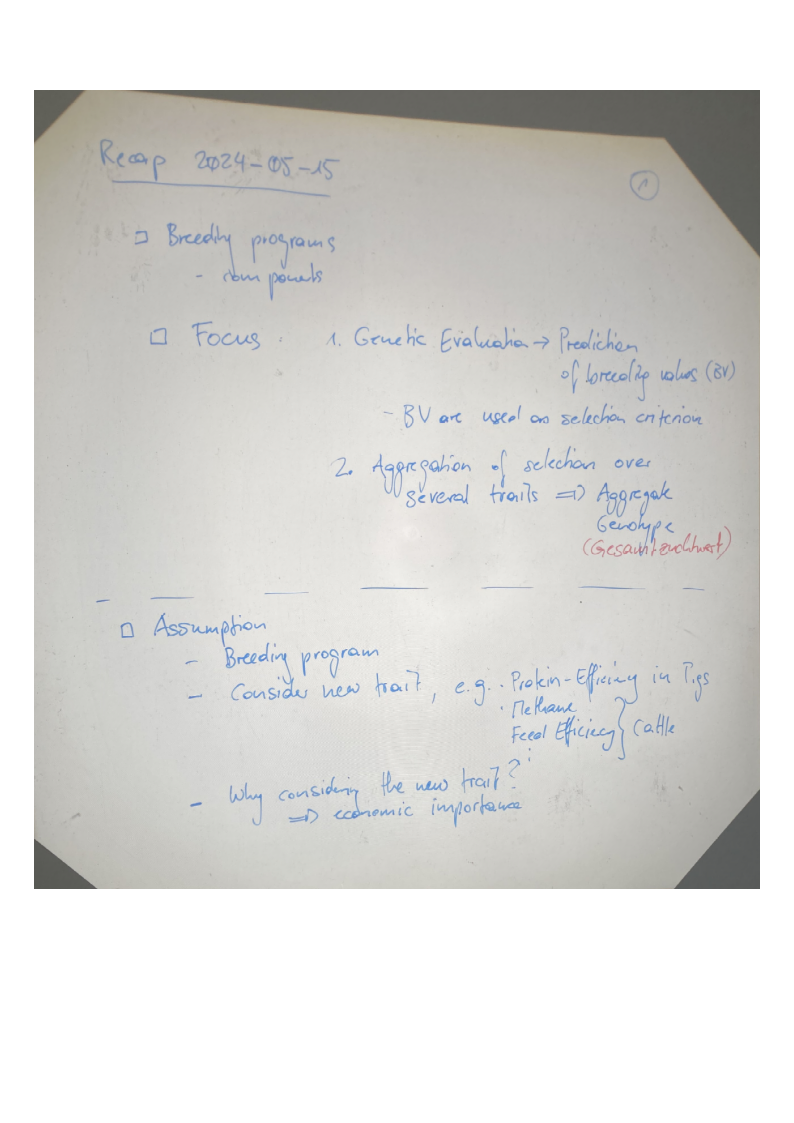 Recap 2024-05-15
1
□ Breeding programs
- components
□ Focus: 1. Genetic Evaluation → Prediction
of breeding values (BV)
- BV are used as selection criterion
2. Aggregation of selection over
several traits ⇒ Aggregate
Genotype
(Gesamtzuchtwert)
□ Assumption
- Breeding program
- Consider new trait, e.g. · Protein-Efficiency in Pigs
· Methane
Feed Efficiency } Cattle
⋮
- Why considering the new trait?
⇒ economic importance